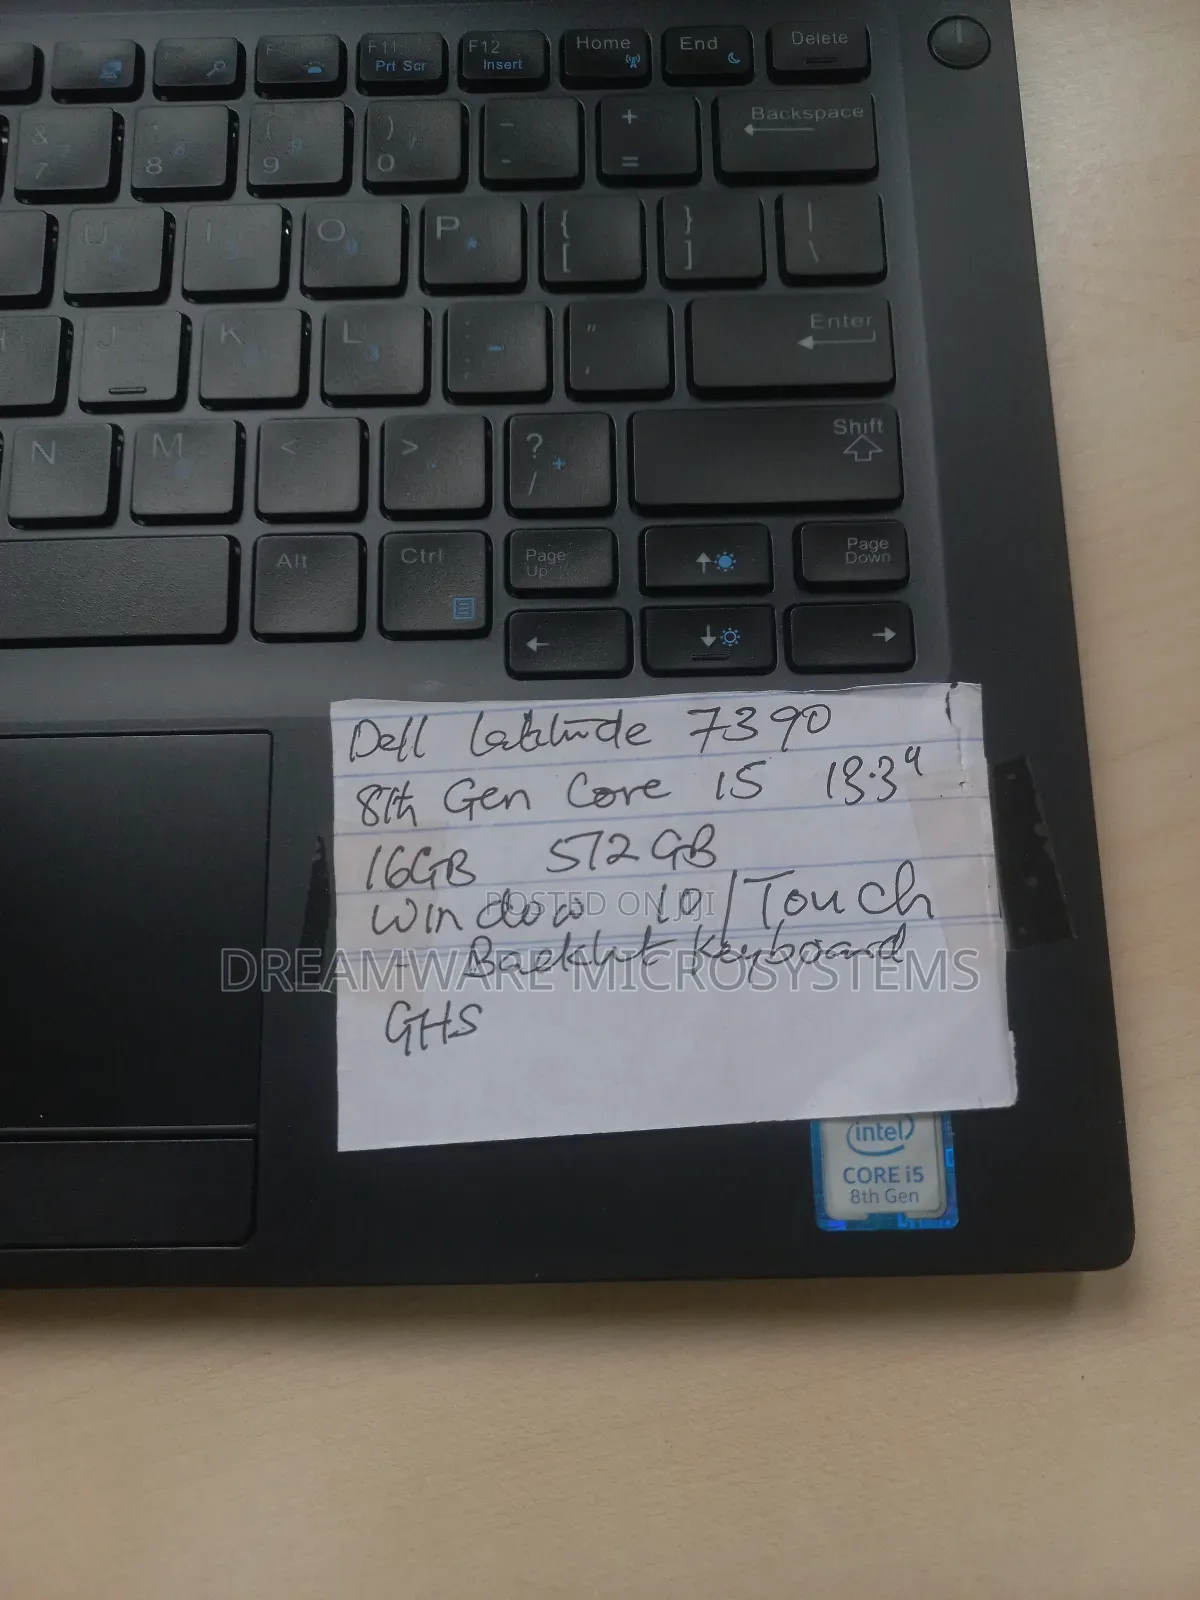 F11 F12 Home End Delete
Prt Scr Insert
& * ( ) _ + Backspace
7 8 9 0 - =
U I O P { } |
[ ] \
J K L : " Enter
; '
N M < > ? Shift
. /
Alt Ctrl Page Up Page Down
Dell Latitude 7390
8th Gen Core i5 13.3"
16GB 512GB
Window 10/Touch
- Backlit Keyboard
GHS
POSTED ON JIJI
DREAMWARE MICROSYSTEMS
intel
CORE i5
8th Gen